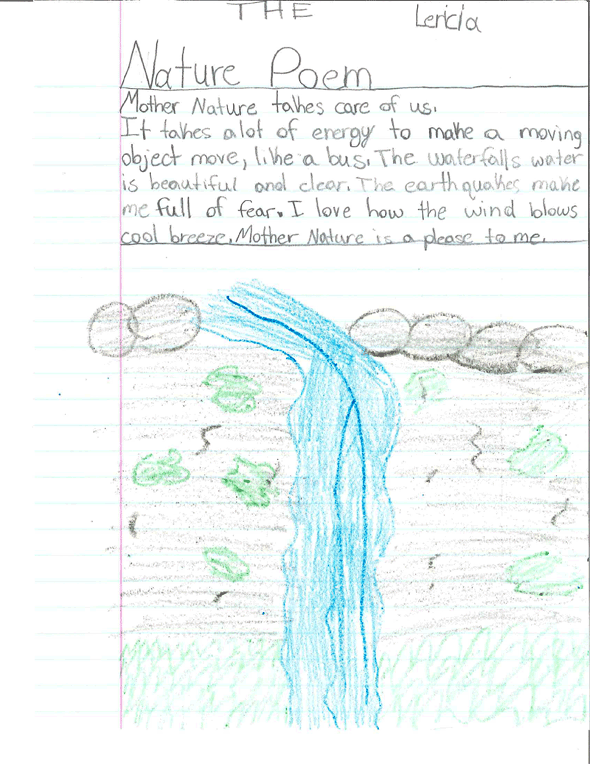 THE
Lericia
Nature Poem
Mother Nature takes care of us.
It takes alot of energy to make a moving
object move, like a bus. The waterfalls water
is beautiful and clear. The earthquakes make
me full of fear. I love how the wind blows
cool breeze. Mother Nature is a please to me.